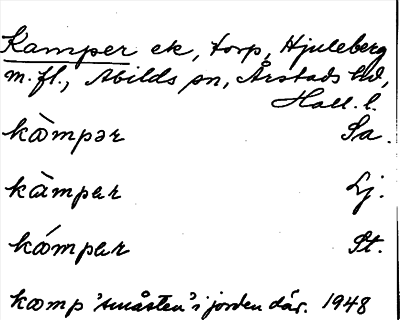 Kamper ek, torp, Hjuleberg
m. fl., Abilds sn, Årstads hd,
Hall. l.
kàmpər Sa.
kàmpar Lj.
kǿmpar St.
kamp 'småsten' i jorden där. 1948